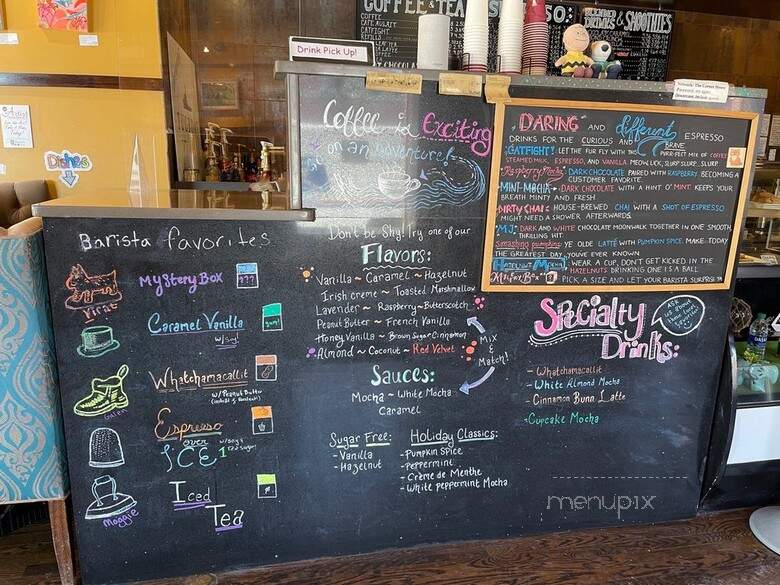 COFFEE & TEA
& SMOOTHIES
COFFEE
CAFE AU LAIT
CATFIGHT
Drink Pick Up!
Dishes
Coffee is Exciting
Go on an adventure!
Don't be Shy! Try one of our
Flavors:
Vanilla ~ Caramel ~ Hazelnut
Irish creme ~ Toasted Marshmallow
Lavender ~ Raspberry ~ Butterscotch
Peanut Butter ~ French Vanilla
Honey Vanilla ~ Brown Sugar Cinnamon
Almond ~ Coconut ~ Red Velvet
Mix
&
Match!
Sauces:
Mocha ~ White Mocha
Caramel
Sugar Free:
- Vanilla
- Hazelnut
Holiday Classics:
- Pumpkin Spice
- Peppermint
- Crème de Menthe
- White Peppermint Mocha
Barista favorites
Mystery Box
???
Caramel Vanilla
w/soy!
Whatchamacallit
w/Peanut Butter
Espresso
over
ICE
Iced
Tea
Maggie
DARING AND different ESPRESSO
DRINKS FOR THE CURIOUS AND BRAVE
CATFIGHT! LET THE FUR FLY WITH THIS PURR-FECT MIX OF COFFEE
STEAMED MILK, ESPRESSO, AND VANILLA MEOW LICK, SLURP SLURP...SLURP
Raspberry Mocha: DARK CHOCOLATE PAIRED WITH RASPBERRY. BECOMING A
CUSTOMER FAVORITE
MINT-MOCHA - DARK CHOCOLATE WITH A HINT O' MINT KEEPS YOUR
BREATH MINTY AND FRESH
DIRTY CHAI: HOUSE-BREWED CHAI WITH A SHOT OF ESPRESSO
MIGHT NEED A SHOWER AFTERWARDS
MJ: DARK AND WHITE CHOCOLATE MOONWALK TOGETHER IN ONE SMOOTH,
THRILLING HIT
Smashing pumpkin: YE OLDE LATTÉ WITH PUMPKIN SPICE. MAKE TODAY
THE GREATEST DAY YOU'VE EVER KNOWN
HAZELNUT MOCHA: WEAR A CUP, DON'T GET KICKED IN THE
HAZELNUTS DRINKING ONE IS A BALL
Mystery Box: PICK A SIZE AND LET YOUR BARISTA SURPRISE YA
Specialty
Drinks:
ASK
us about
- Whatchamacallit
- White Almond Mocha
- Cinnamon Bunn Latte
- Cupcake Mocha
menupix